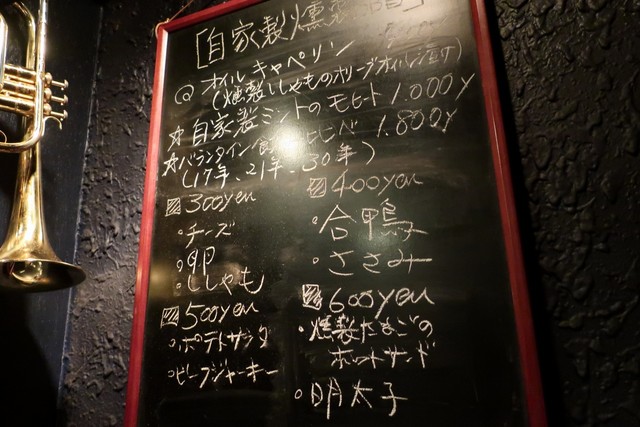 [自家製燻製
@ オイルキャペリン
(燻製ししゃものオリーブオイル漬け)
☆自家製ミントのモヒート 1.000y
☆バランタイン 飲 ヒベ 1.800y
(17年.21年.30年)
300yen
・チーズ
・卵
・ししゃも
500yen
・ポテトサラダ
・ビーフジャーキー
400yen
・合鴨
・ささみ
600yen
・燻製たまごの
ホットサンド
・明太子